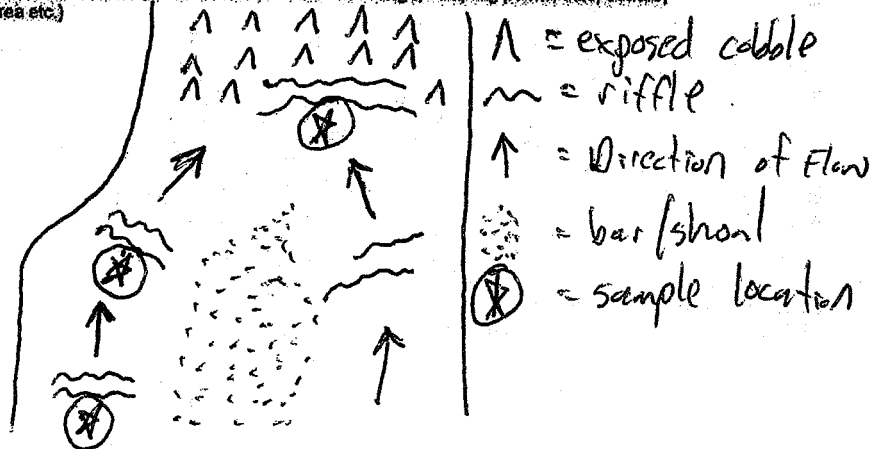 rea etc.)
= exposed cobble
= riffle
= Direction of Flow
= bar/shoal
= sample location